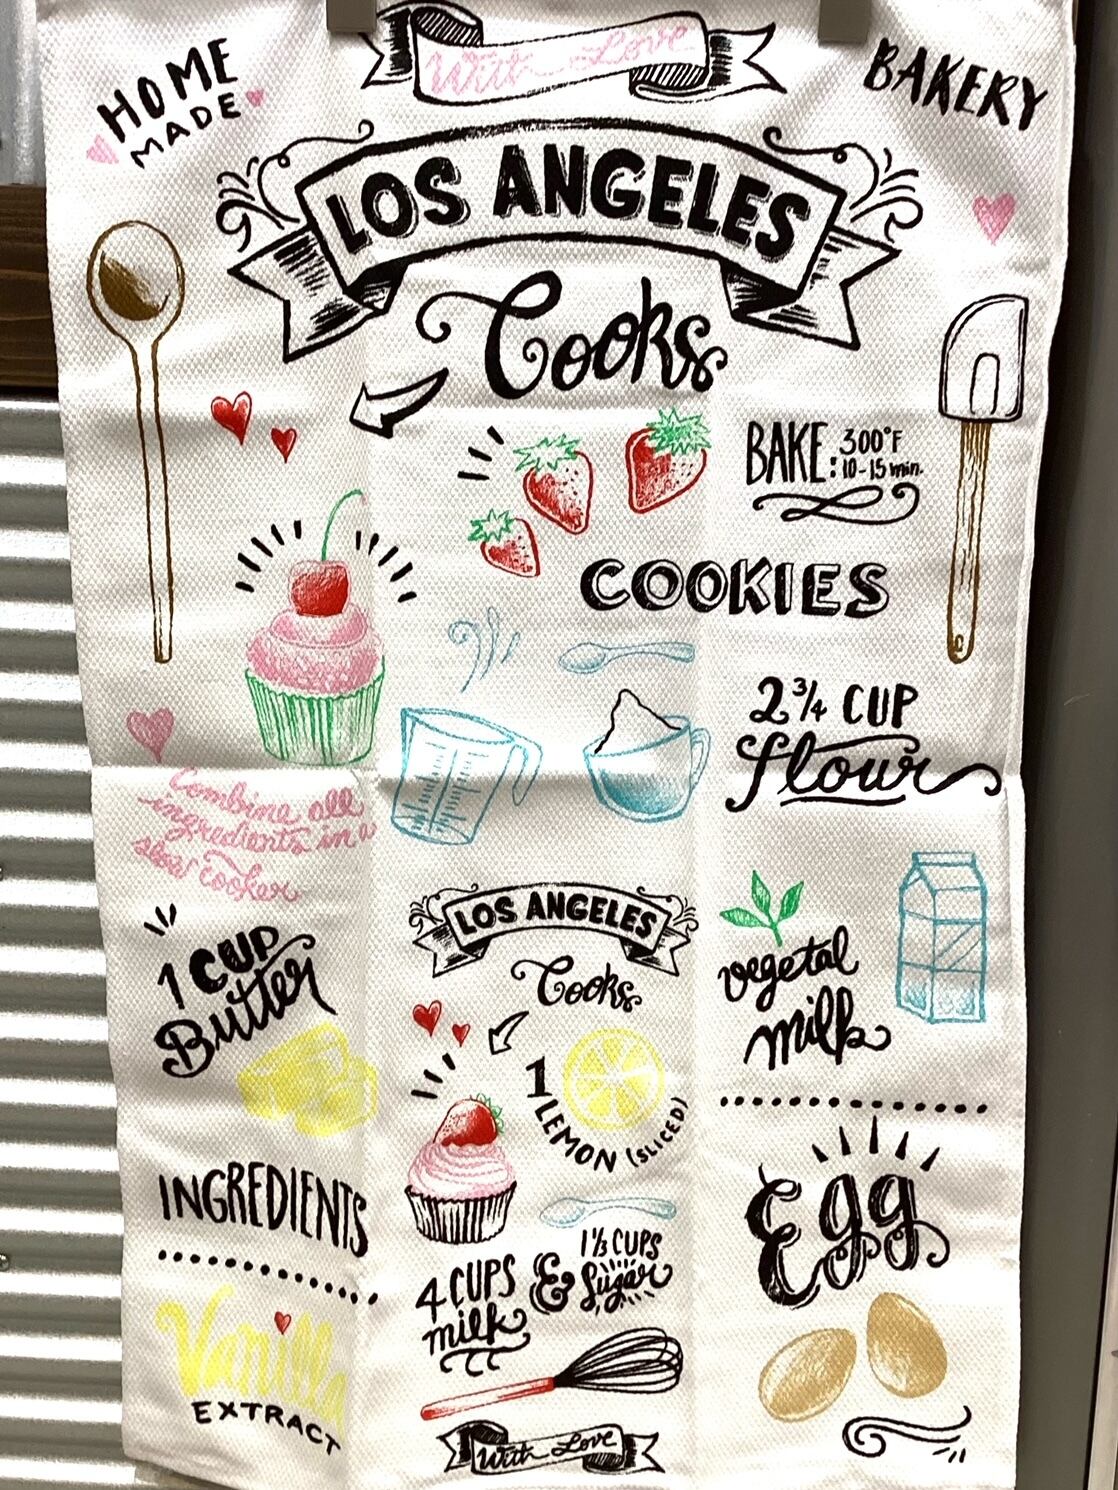 With Love
HOME
MADE
BAKERY
LOS ANGELES
Cooks
BAKE: 300°F
10-15 min.
COOKIES
2 3/4 CUP
flour
Combine all
ingredients in a
slow cooker
1 CUP
Butter
LOS ANGELES
Cooks
vegetal
milk
1 LEMON (SLICED)
INGREDIENTS
Egg
4 CUPS
milk
& 1 1/3 CUPS
Sugar
Vanilla
EXTRACT
With Love